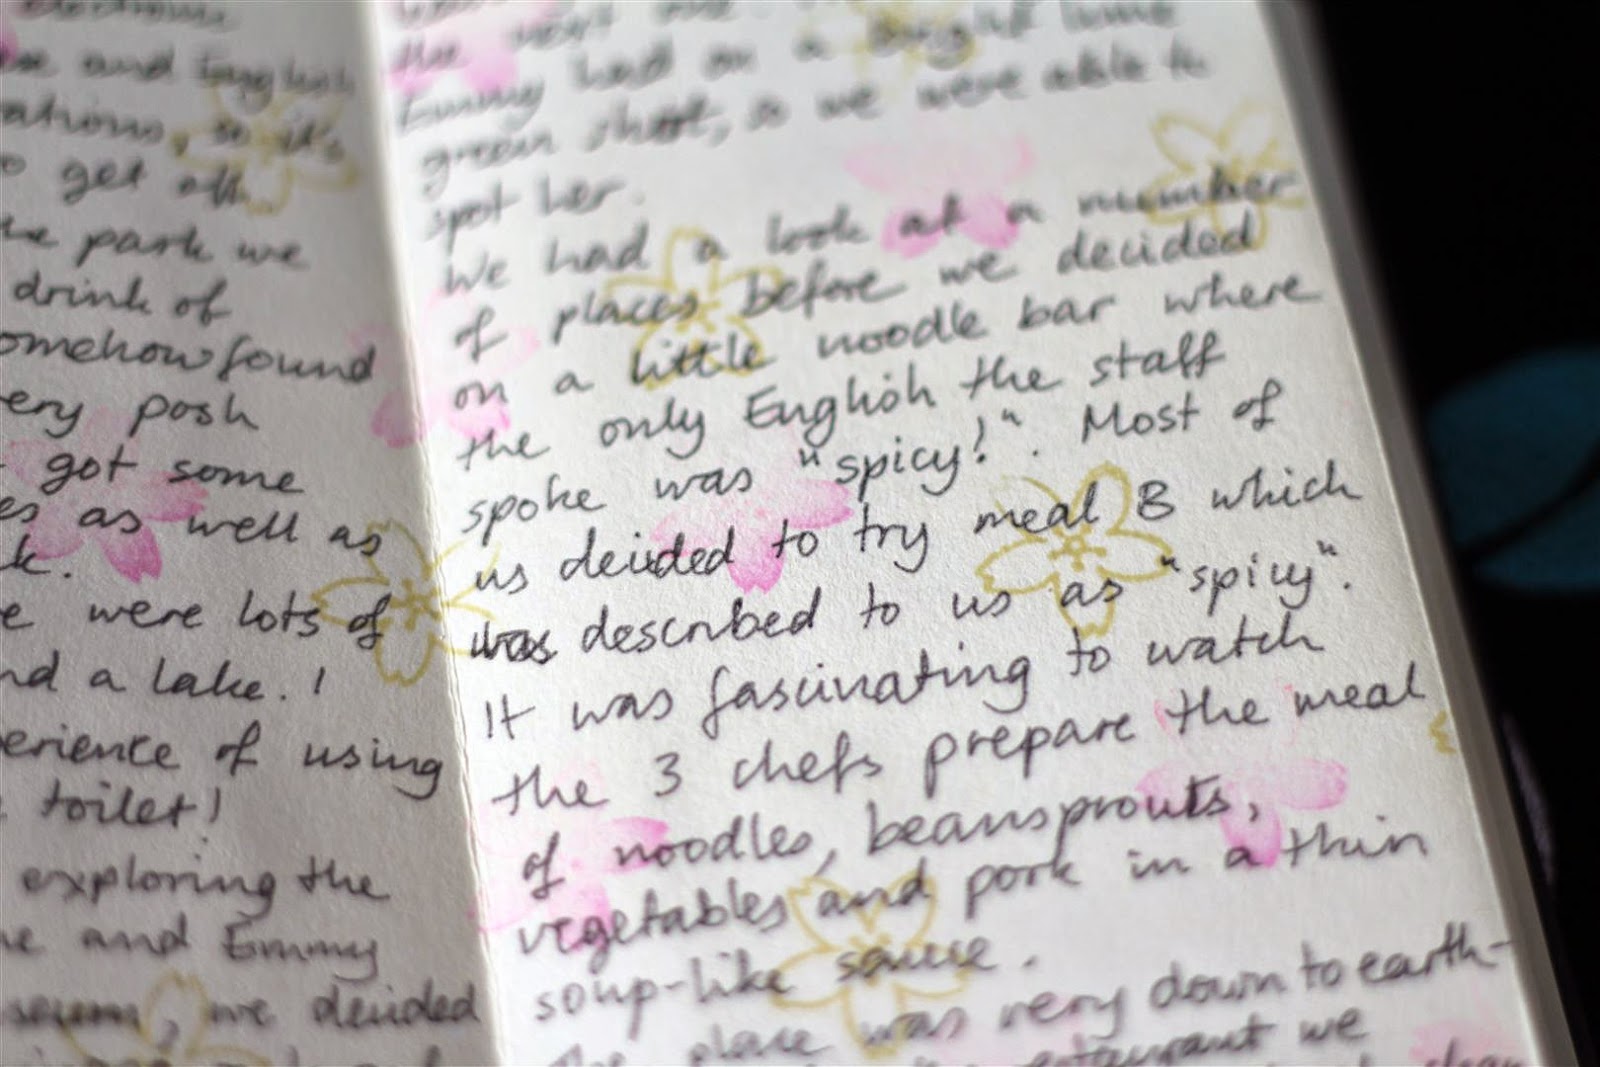 and English
so it's
get off
the park we
drink of
somehow found
very posh
got some
as well as
k.
were lots of
and a lake. !
perience of using
toilet!
exploring the
and Emmy
we decided
the next
Emmy had on a bright lime
green shirt, so we were able to
spot her.
We had a look at a number
of places before we decided
on a little noodle bar where
the only English the staff
spoke was "spicy!". Most of
us decided to try meal B which
was described to us as "spicy".
It was fascinating to watch
the 3 chefs prepare the meal
of noodles, beansprouts,
vegetables and pork in a thin
soup-like sauce.
The place was very down to earth-
restaurant we